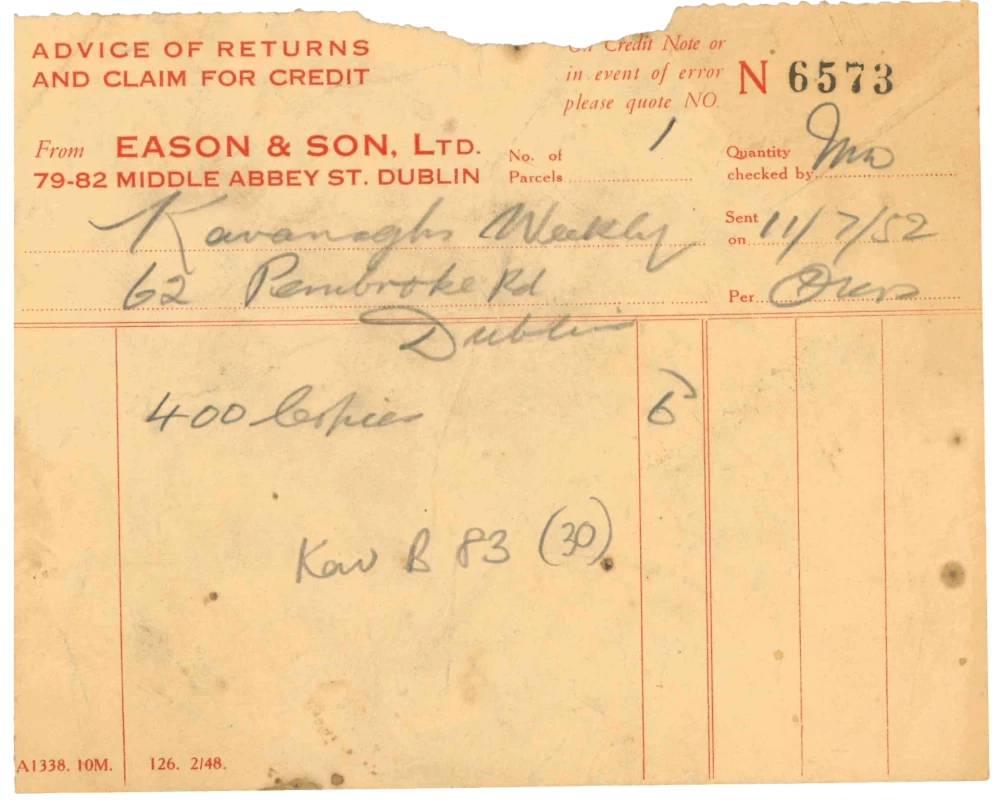 ADVICE OF RETURNS
AND CLAIM FOR CREDIT
On Credit Note or
in event of error
please quote NO.
N 6573
From EASON & SON, LTD.
79-82 MIDDLE ABBEY ST. DUBLIN
No. of
Parcels 1
Quantity
checked by
Kavanaghs Weekly
Sent
on 11/7/52
62 Pembroke Rd
Per
Dublin
400 Copies 6
Kav B 83 (30)
A1338. 10M. 126. 2/48.